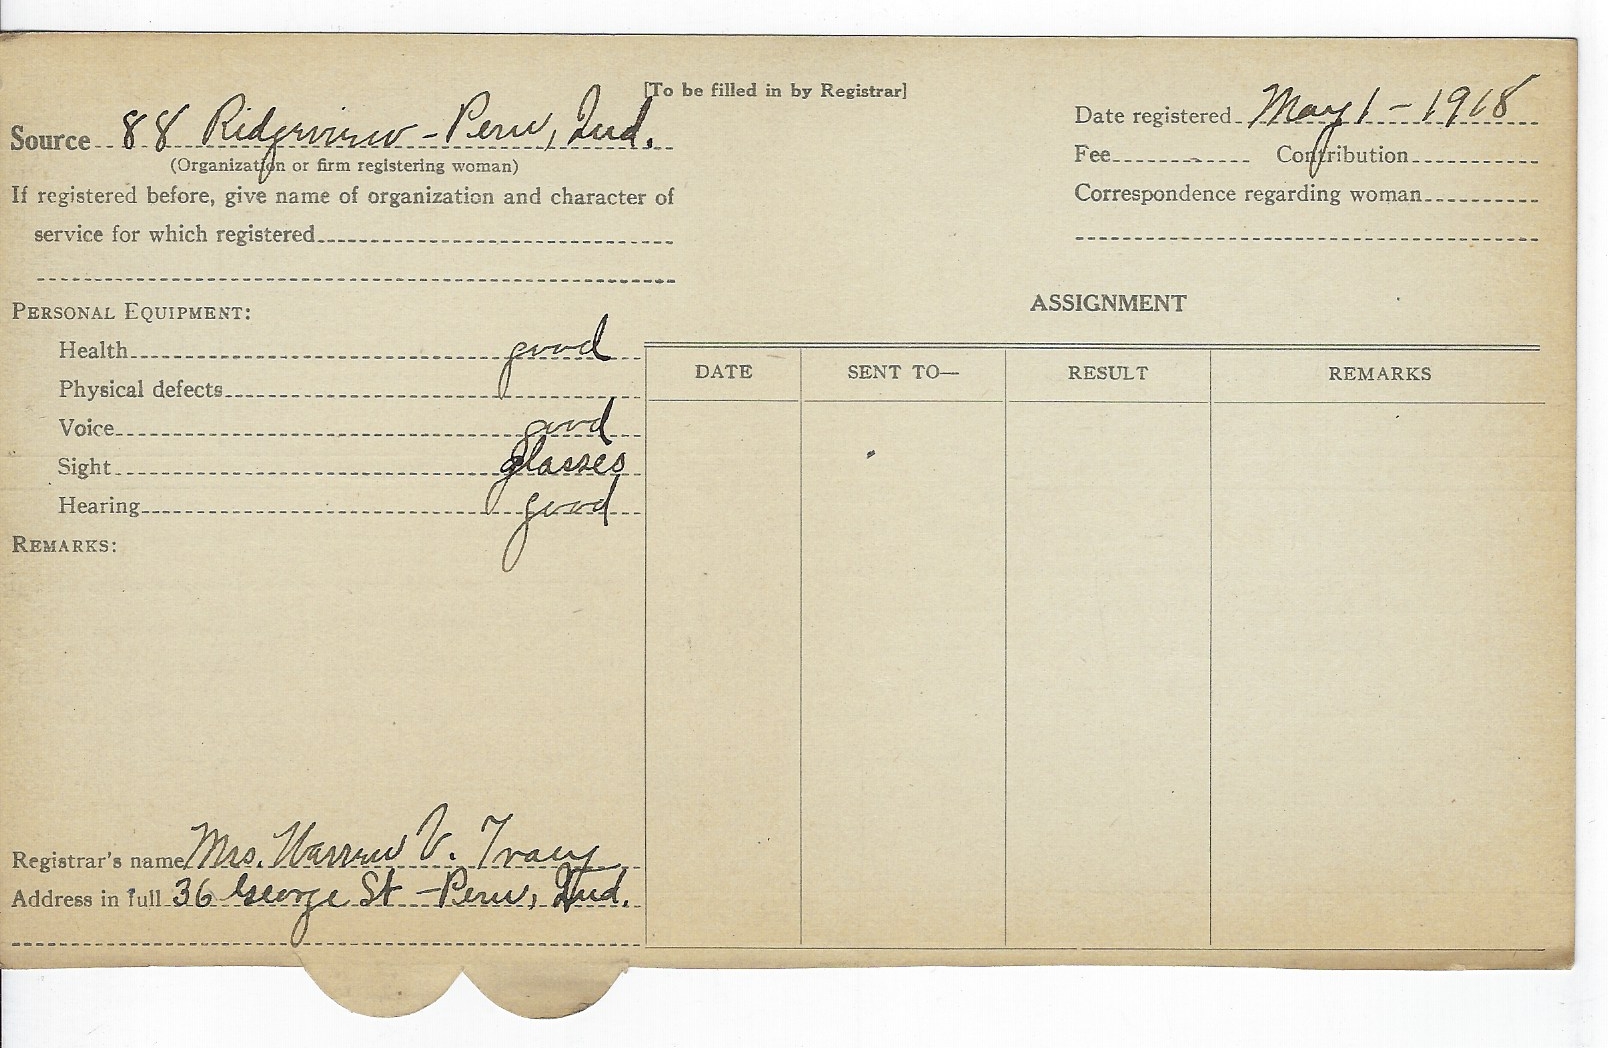 [To be filled in by Registrar]
Source 88 Ridgeview - Peru, Ind.
(Organization or firm registering woman)
If registered before, give name of organization and character of
service for which registered
Date registered May 1 - 1918
Fee Contribution
Correspondence regarding woman
PERSONAL EQUIPMENT:
Health good
Physical defects
Voice good
Sight glasses
Hearing good
REMARKS:
Registrar's name Mrs. Warren V. Tracy
Address in full 36 George St - Peru, Ind.
ASSIGNMENT
DATE SENT TO— RESULT REMARKS